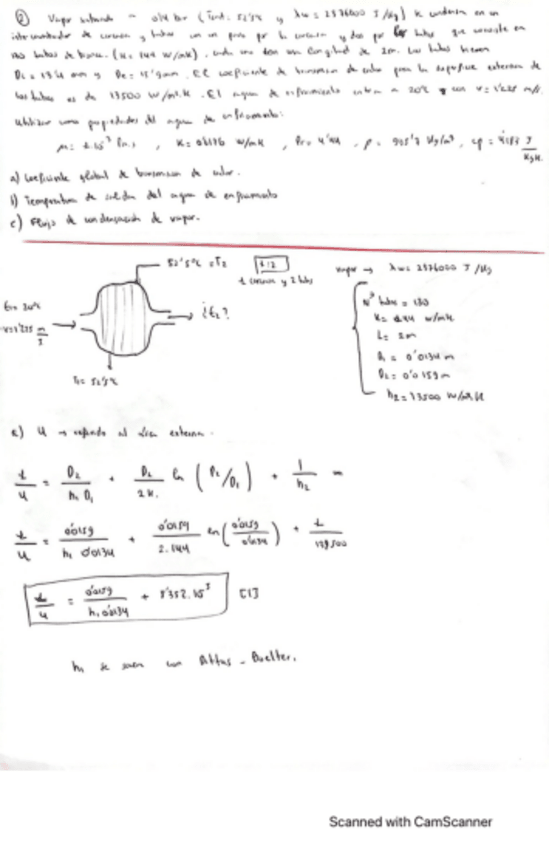 ② Vapor saturado a 0'14 bar (Tcond. 52'5ºC y λw = 2376000 J/Kg) se condensa en un
intercambiador de carcasa y tubos con un paso por la carcasa y dos por los tubos que consiste en
130 tubos de bronce (k = 144 W/mK), cada uno con una longitud de 2m. Los tubos tienen
Di = 13'4 mm y De = 15'9mm. El coeficiente de transmisión de calor para la superficie externa de
los tubos es de 13500 W/m²K. El agua de enfriamiento entra a 20ºC y con v = 1'25 m/s.
Utilizar como propiedades del agua de enfriamiento:
μ = Pa.s , K = W/mK , Pr = , ρ = Kg/m³ , cp = J/KgK.
a) Coeficiente global de transmisión de calor.
b) Temperatura de salida del agua de enfriamiento
c) Flujo de condensación de vapor.
52'5ºC = T2
1 carcasa y 2 tubos
t1 = 20ºC
v = 1'25 m/s
¿t2?
T1 = 52'5ºC
vapor → λw = 2376000 J/Kg
Nº tubos = 130
K = 144 W/mK
L = 2m
D1 = 0'0134 m
D2 = 0'0159 m
h2 = 13500 W/m²K
a) U → referido al área externa.
1/U = D2/h1 D1 + D2/2K ln (D2/D1) + 1/h2 =
1/U = 0'0159/h1 0'0134 + 0'0159/2.144 ln (0'0159/0'0134) + 1/13500
1/U = 0'0159/h1.0'0134 + [1]
h1 se saca con Dittus - Boelter.
Scanned with CamScanner